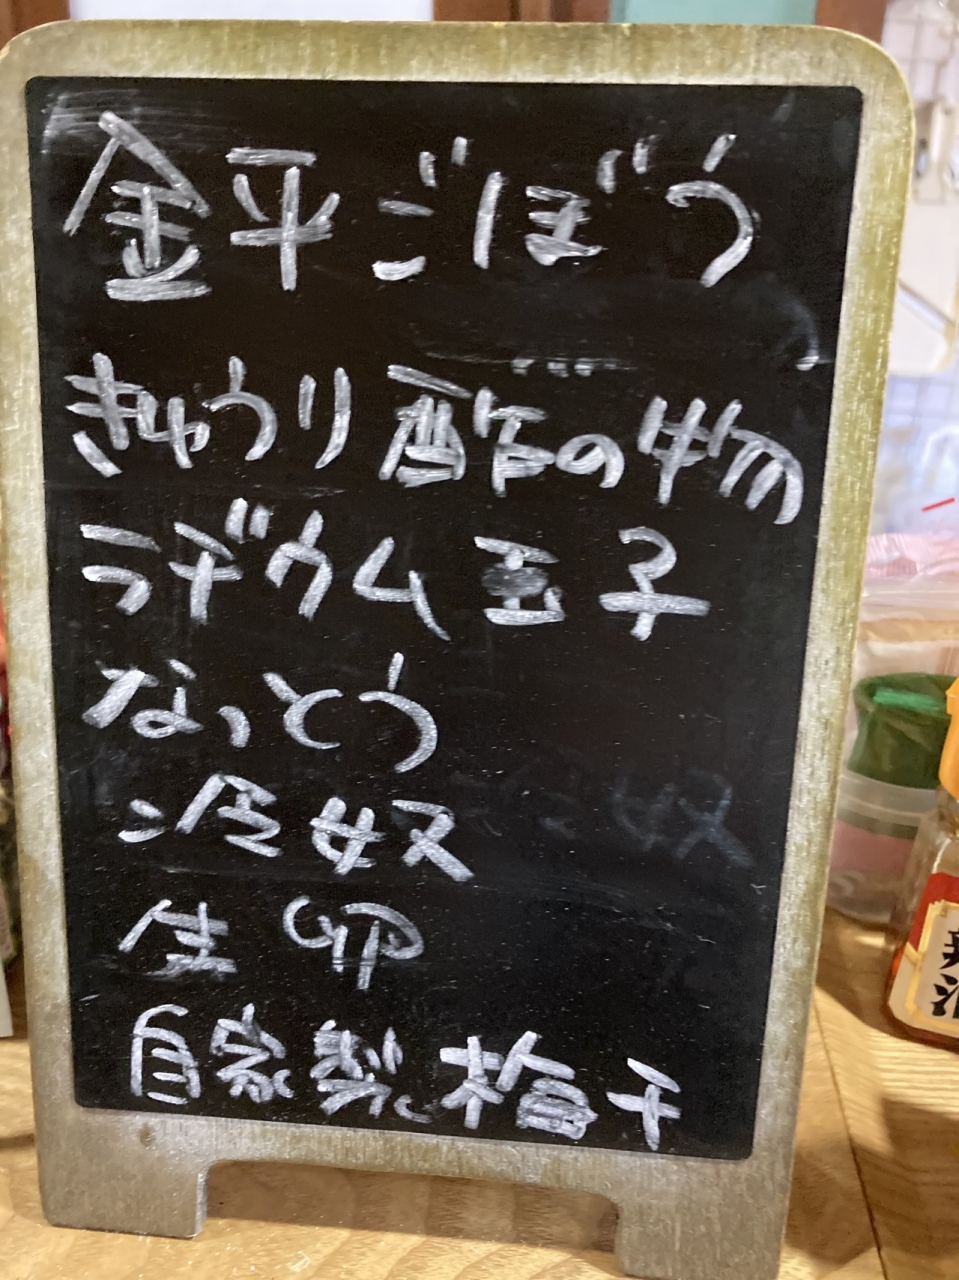 金平ごぼう
きゅうり酢の物
ラヂウム玉子
なっとう
冷奴
生卵
自家製梅干